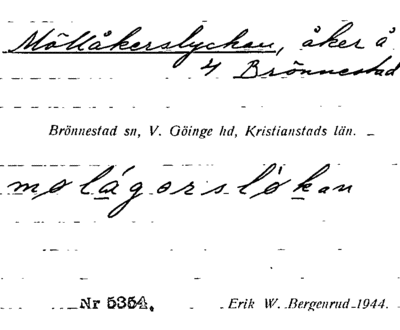 Möllåkerslyckan, åker å
4 Brönnestad
Brönnestad sn, V. Göinge hd, Kristianstads län.
moläg​orsløkan
Nr 5354. Erik W. Bergenrud 1944.